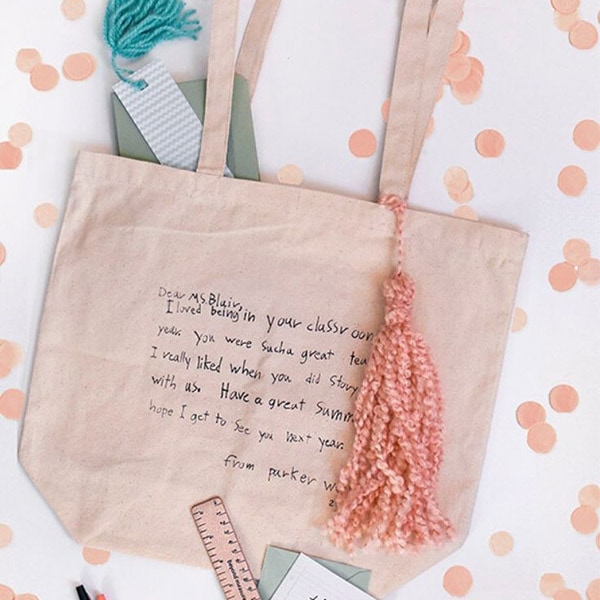 Dear Ms. Blair,
I loved being in your classroom
year. you were sucha great
I really liked when you did Story
with us. Have a great Summ
hope I get to See you next year.
from parker